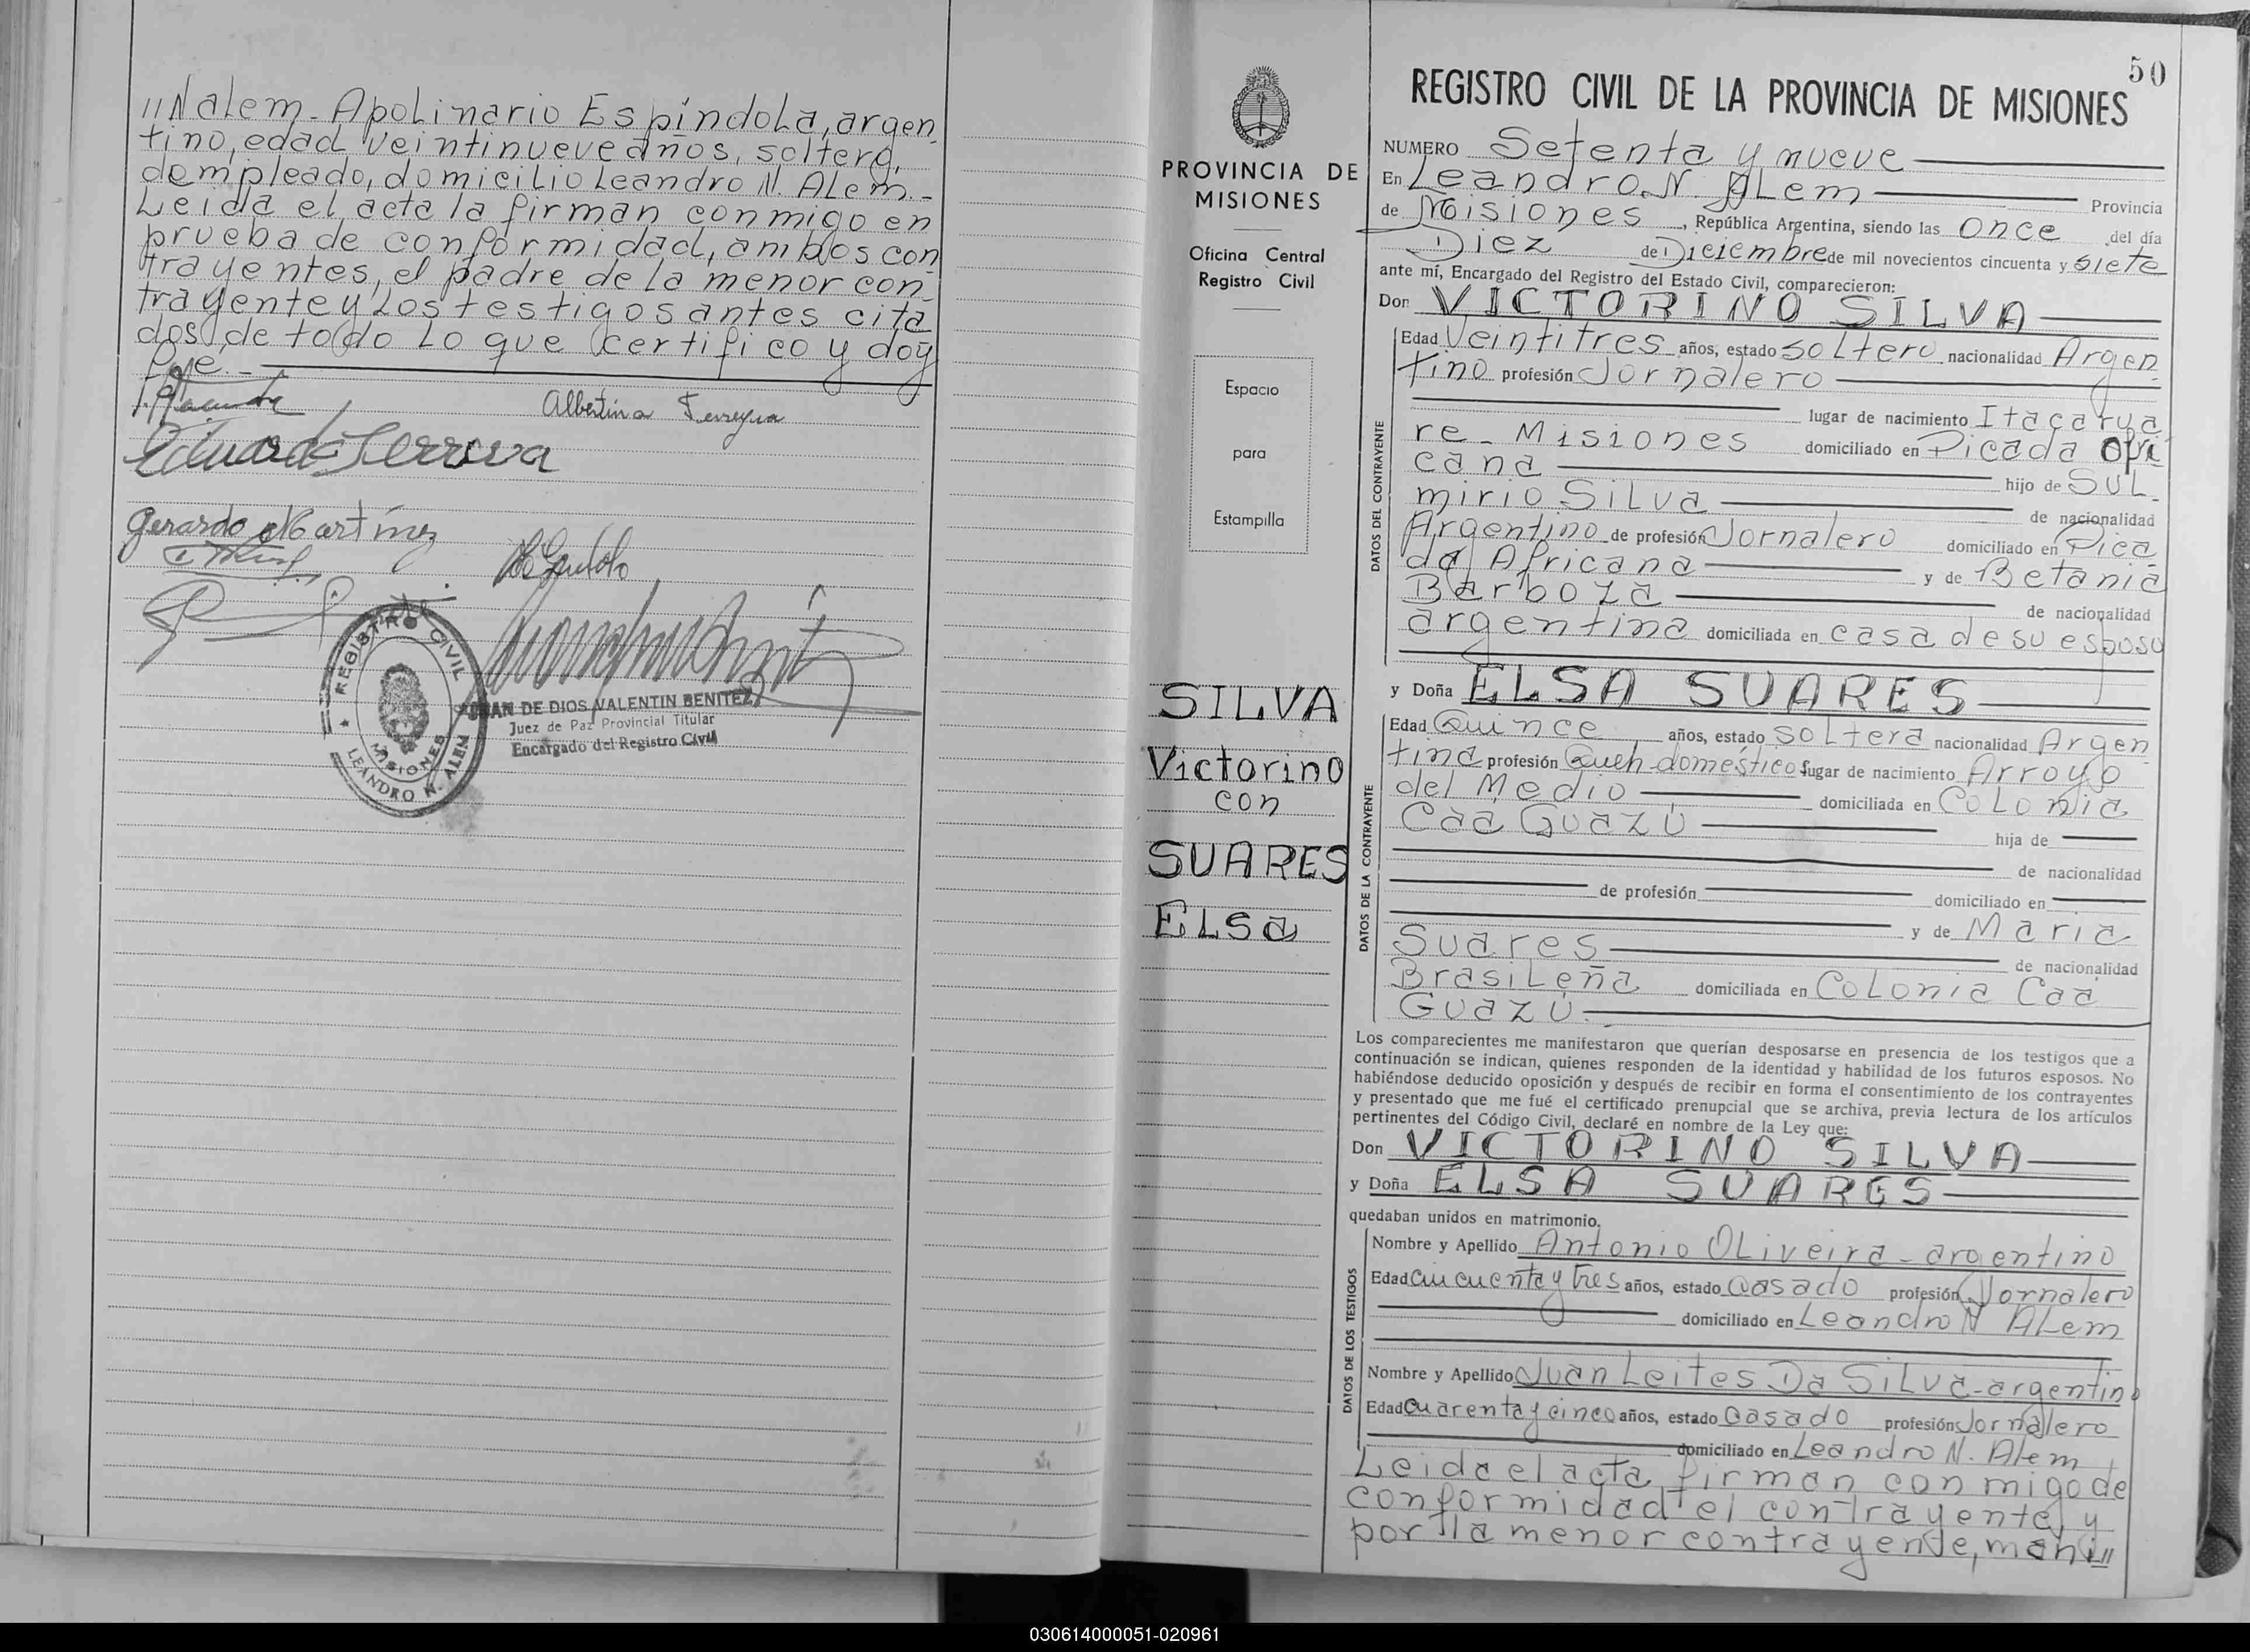 //N alem - Apolinario Espíndola, argen
tino, edad veintinueve años, soltero,
dempleado, domicilio Leandro N. Alem.-
Leida el acta la firman conmigo en
prueba de conformidad, ambos con
trayentes, el padre de la menor con-
trayente y los testigos antes cita
dos, de todo lo que certifico y doy
fe.-
Albertina Ferreyra
Eduardo Ferreira
Gerardo Martínez
REGISTRO CIVIL
MISIONES
LEANDRO N. ALEM
JUAN DE DIOS VALENTIN BENITEZ
Juez de Paz Provincial Titular
Encargado del Registro Civil
PROVINCIA DE
MISIONES
Oficina Central
Registro Civil
Espacio
para
Estampilla
SILVA
Victorino
con
SUARES
Elsa
50
REGISTRO CIVIL DE LA PROVINCIA DE MISIONES
NUMERO Setenta y nueve
En Leandro N. Alem Provincia
de Misiones, República Argentina, siendo las Once del día
Diez de Diciembre de mil novecientos cincuenta y siete
ante mí, Encargado del Registro del Estado Civil, comparecieron:
Don VICTORINO SILVA
DATOS DEL CONTRAYENTE
Edad Veintitres años, estado soltero nacionalidad Argen
tino profesión Jornalero
lugar de nacimiento Itacarua
re - Misiones domiciliado en Picada Afri
cana hijo de Sul-
mirio Silva de nacionalidad
Argentino de profesión Jornalero domiciliado en Pica
da Africana y de Betania
Barboza de nacionalidad
argentina domiciliada en casa de su esposo
y Doña ELSA SUARES
DATOS DE LA CONTRAYENTE
Edad Quince años, estado soltera nacionalidad Argen
tina profesión Queh-doméstico lugar de nacimiento Arroyo
del Medio domiciliada en Colonia
Caa Guazú hija de
de nacionalidad
de profesión domiciliado en
y de Maria
Suares de nacionalidad
Brasileña domiciliada en Colonia Caa
Guazú
Los comparecientes me manifestaron que querían desposarse en presencia de los testigos que a
continuación se indican, quienes responden de la identidad y habilidad de los futuros esposos. No
habiéndose deducido oposición y después de recibir en forma el consentimiento de los contrayentes
y presentado que me fué el certificado prenupcial que se archiva, previa lectura de los artículos
pertinentes del Código Civil, declaré en nombre de la Ley que:
Don VICTORINO SILVA
y Doña ELSA SUARES
quedaban unidos en matrimonio.
DATOS DE LOS TESTIGOS
Nombre y Apellido Antonio Oliveira - argentino
Edad cincuenta y tres años, estado casado profesión Jornalero
domiciliado en Leandro N Alem
Nombre y Apellido Juan Leites Da Silva - argentino
Edad cuarenta y cinco años, estado casado profesión Jornalero
domiciliado en Leandro N. Alem
Leida el acta firman conmigo de
conformidad el contrayente, y
por la menor contrayente, mani//
030614000051-020961